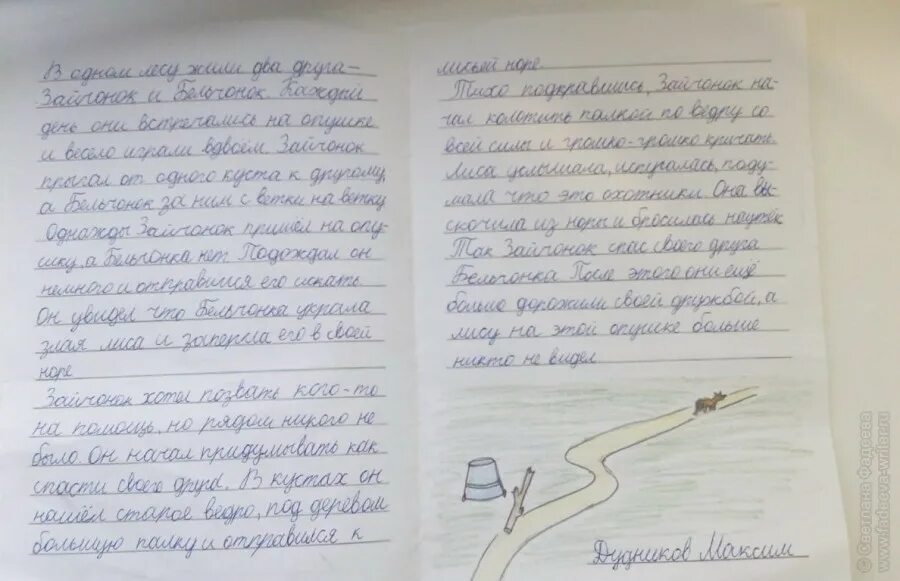 В одном лесу жили два друга-
Зайчонок и Бельчонок. Каждый
день они встречались на опушке
и весело играли вдвоём. Зайчонок
прыгал от одного куста к другому,
а Бельчонок за ним с ветки на ветку.
Однажды Зайчонок пришёл на опу-
шку, а Бельчонка нет. Подождал он
немного и отправился его искать.
Он увидел что Бельчонка украла
злая лиса и заперла его в своей
норе.
Зайчонок хотел позвать кого-то
на помощь, но рядом никого не
было. Он начал придумывать как
спасти своего друга. В кустах он
нашёл старое ведро, под деревом
большую палку и отправился к
лисьей норе.
Тихо подкравшись, Зайчонок на-
чал колотить палкой по ведру со
всей силы и громко-громко кричать.
Лиса услышала, испугалась, поду-
мала что это охотники. Она вы-
скочила из норы и бросилась наутёк.
Так Зайчонок спас своего друга
Бельчонка. После этого они ещё
больше дорожили своей дружбой, а
лису на этой опушке больше
никто не видел.
Дудников Максим
© Светлана Фадеева
www.fadeeva-writer.ru